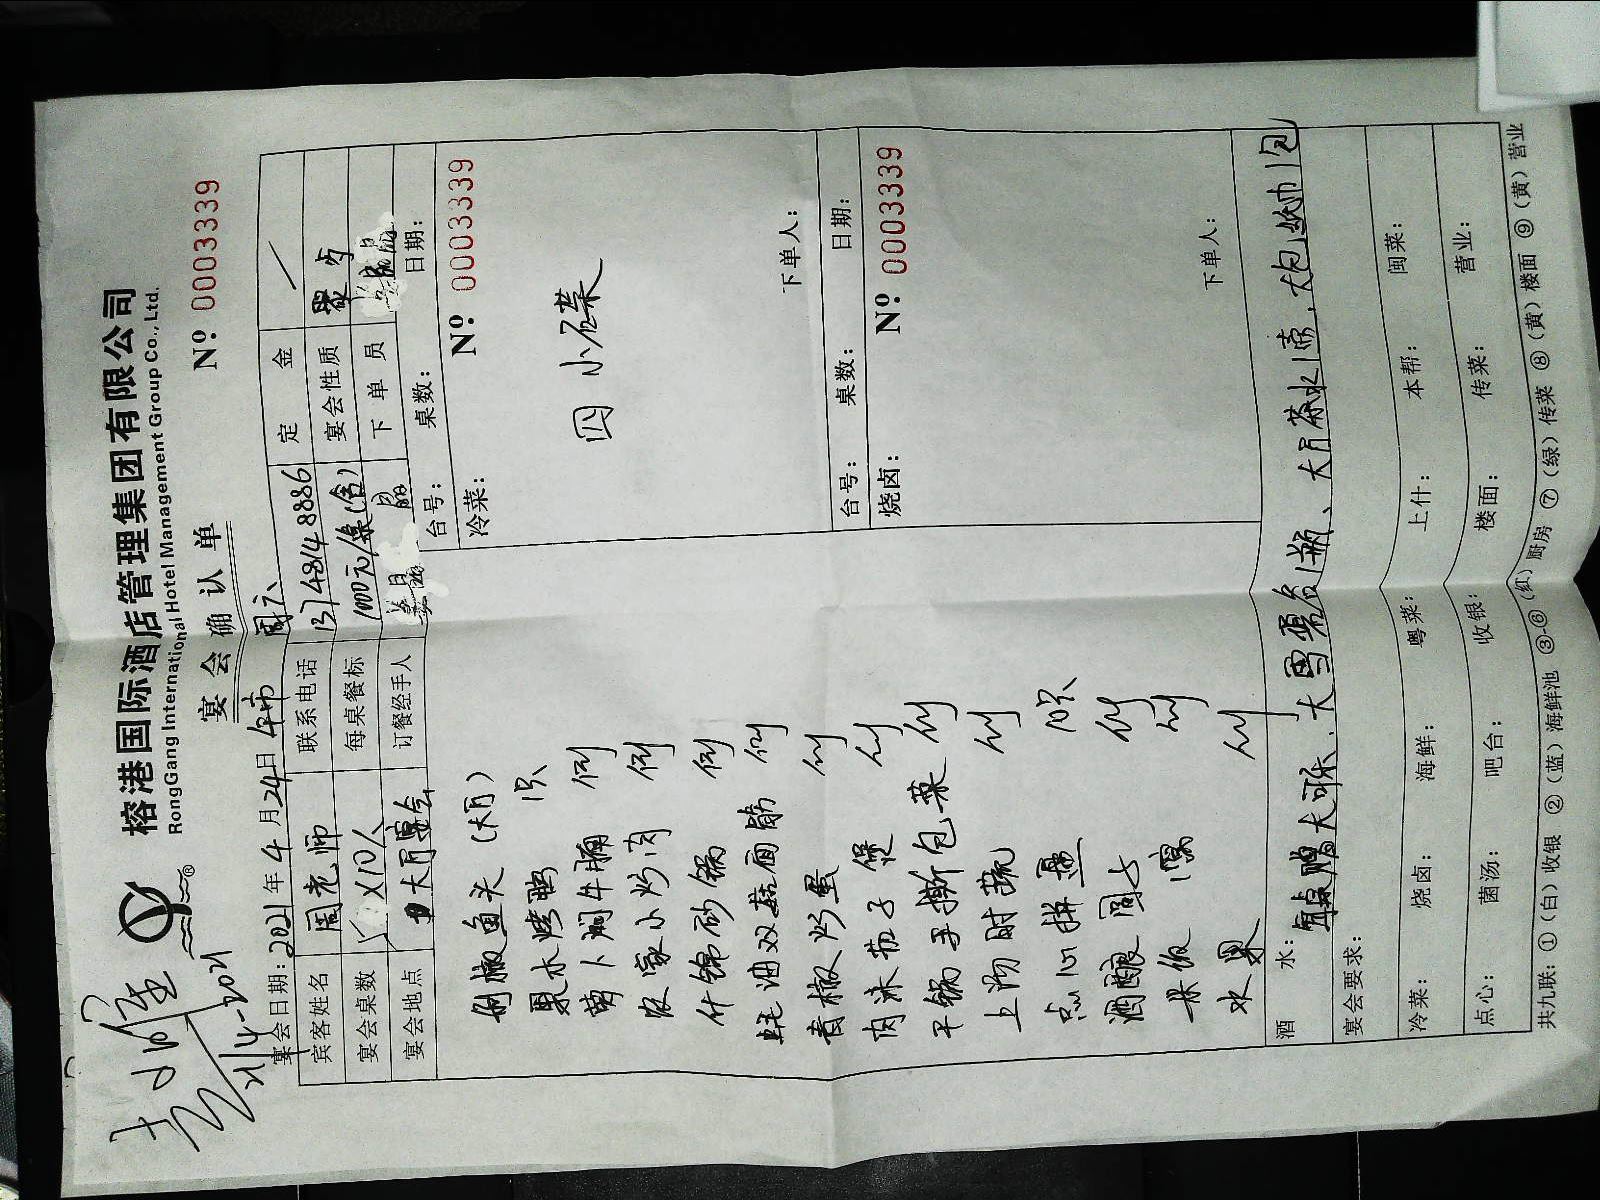 榕港国际酒店管理集团有限公司
RongGang International Hotel Management Group Co., Ltd.
宴会确认单
Nº 0003339
21/4-2021
宴会日期：2021年4月24日 午市 周六
宾客姓名 周老师 联系电话 13748148886 定金 /
宴会桌数 X10人 每桌餐标 1000元/桌(含) 宴会性质 聚步
宴会地点 大月宴会 订餐经手人 下单员
台号： 桌数： 日期：
冷菜： Nº 0003339
四小碟
下单人：
剁椒鱼头（大月）
果木烤鸭 1只
萝卜焖牛腩 例
农家小炒肉 例
什锦砂锅 例
蚝油双菇面筋 例
青椒炒蛋 例
肉沫茄子煲 例
干锅手撕包菜 例
上汤时蔬 例
点心拼盘 10只
酒酿圆子 例
米饭 1窝 例
水果 例
台号： 桌数： 日期：
烧卤： Nº 0003339
下单人：
酒水： 每桌赠大可乐、大雪碧各1瓶、大月茶水1壶，大包纸巾1包
宴会要求：
冷菜： 烧卤： 海鲜： 粤菜： 上什： 本帮： 闽菜：
点心： 菌汤： 吧台： 收银： 楼面： 传菜： 营业：
共九联：①（白）收银 ②（蓝）海鲜池 ③-⑥（红）厨房 ⑦（绿）传菜 ⑧（黄）楼面 ⑨（黄）营业